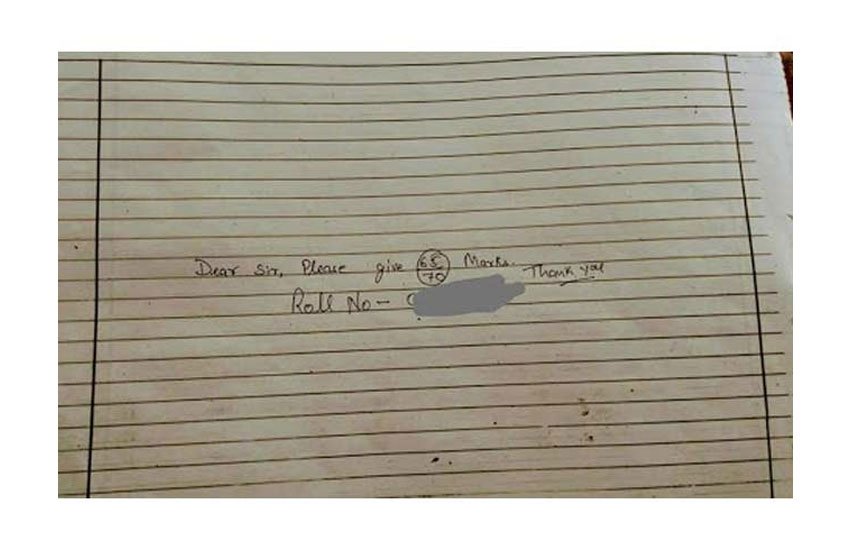 Dear Sir, Please give 65/70 Marks. Thank you
Roll No -